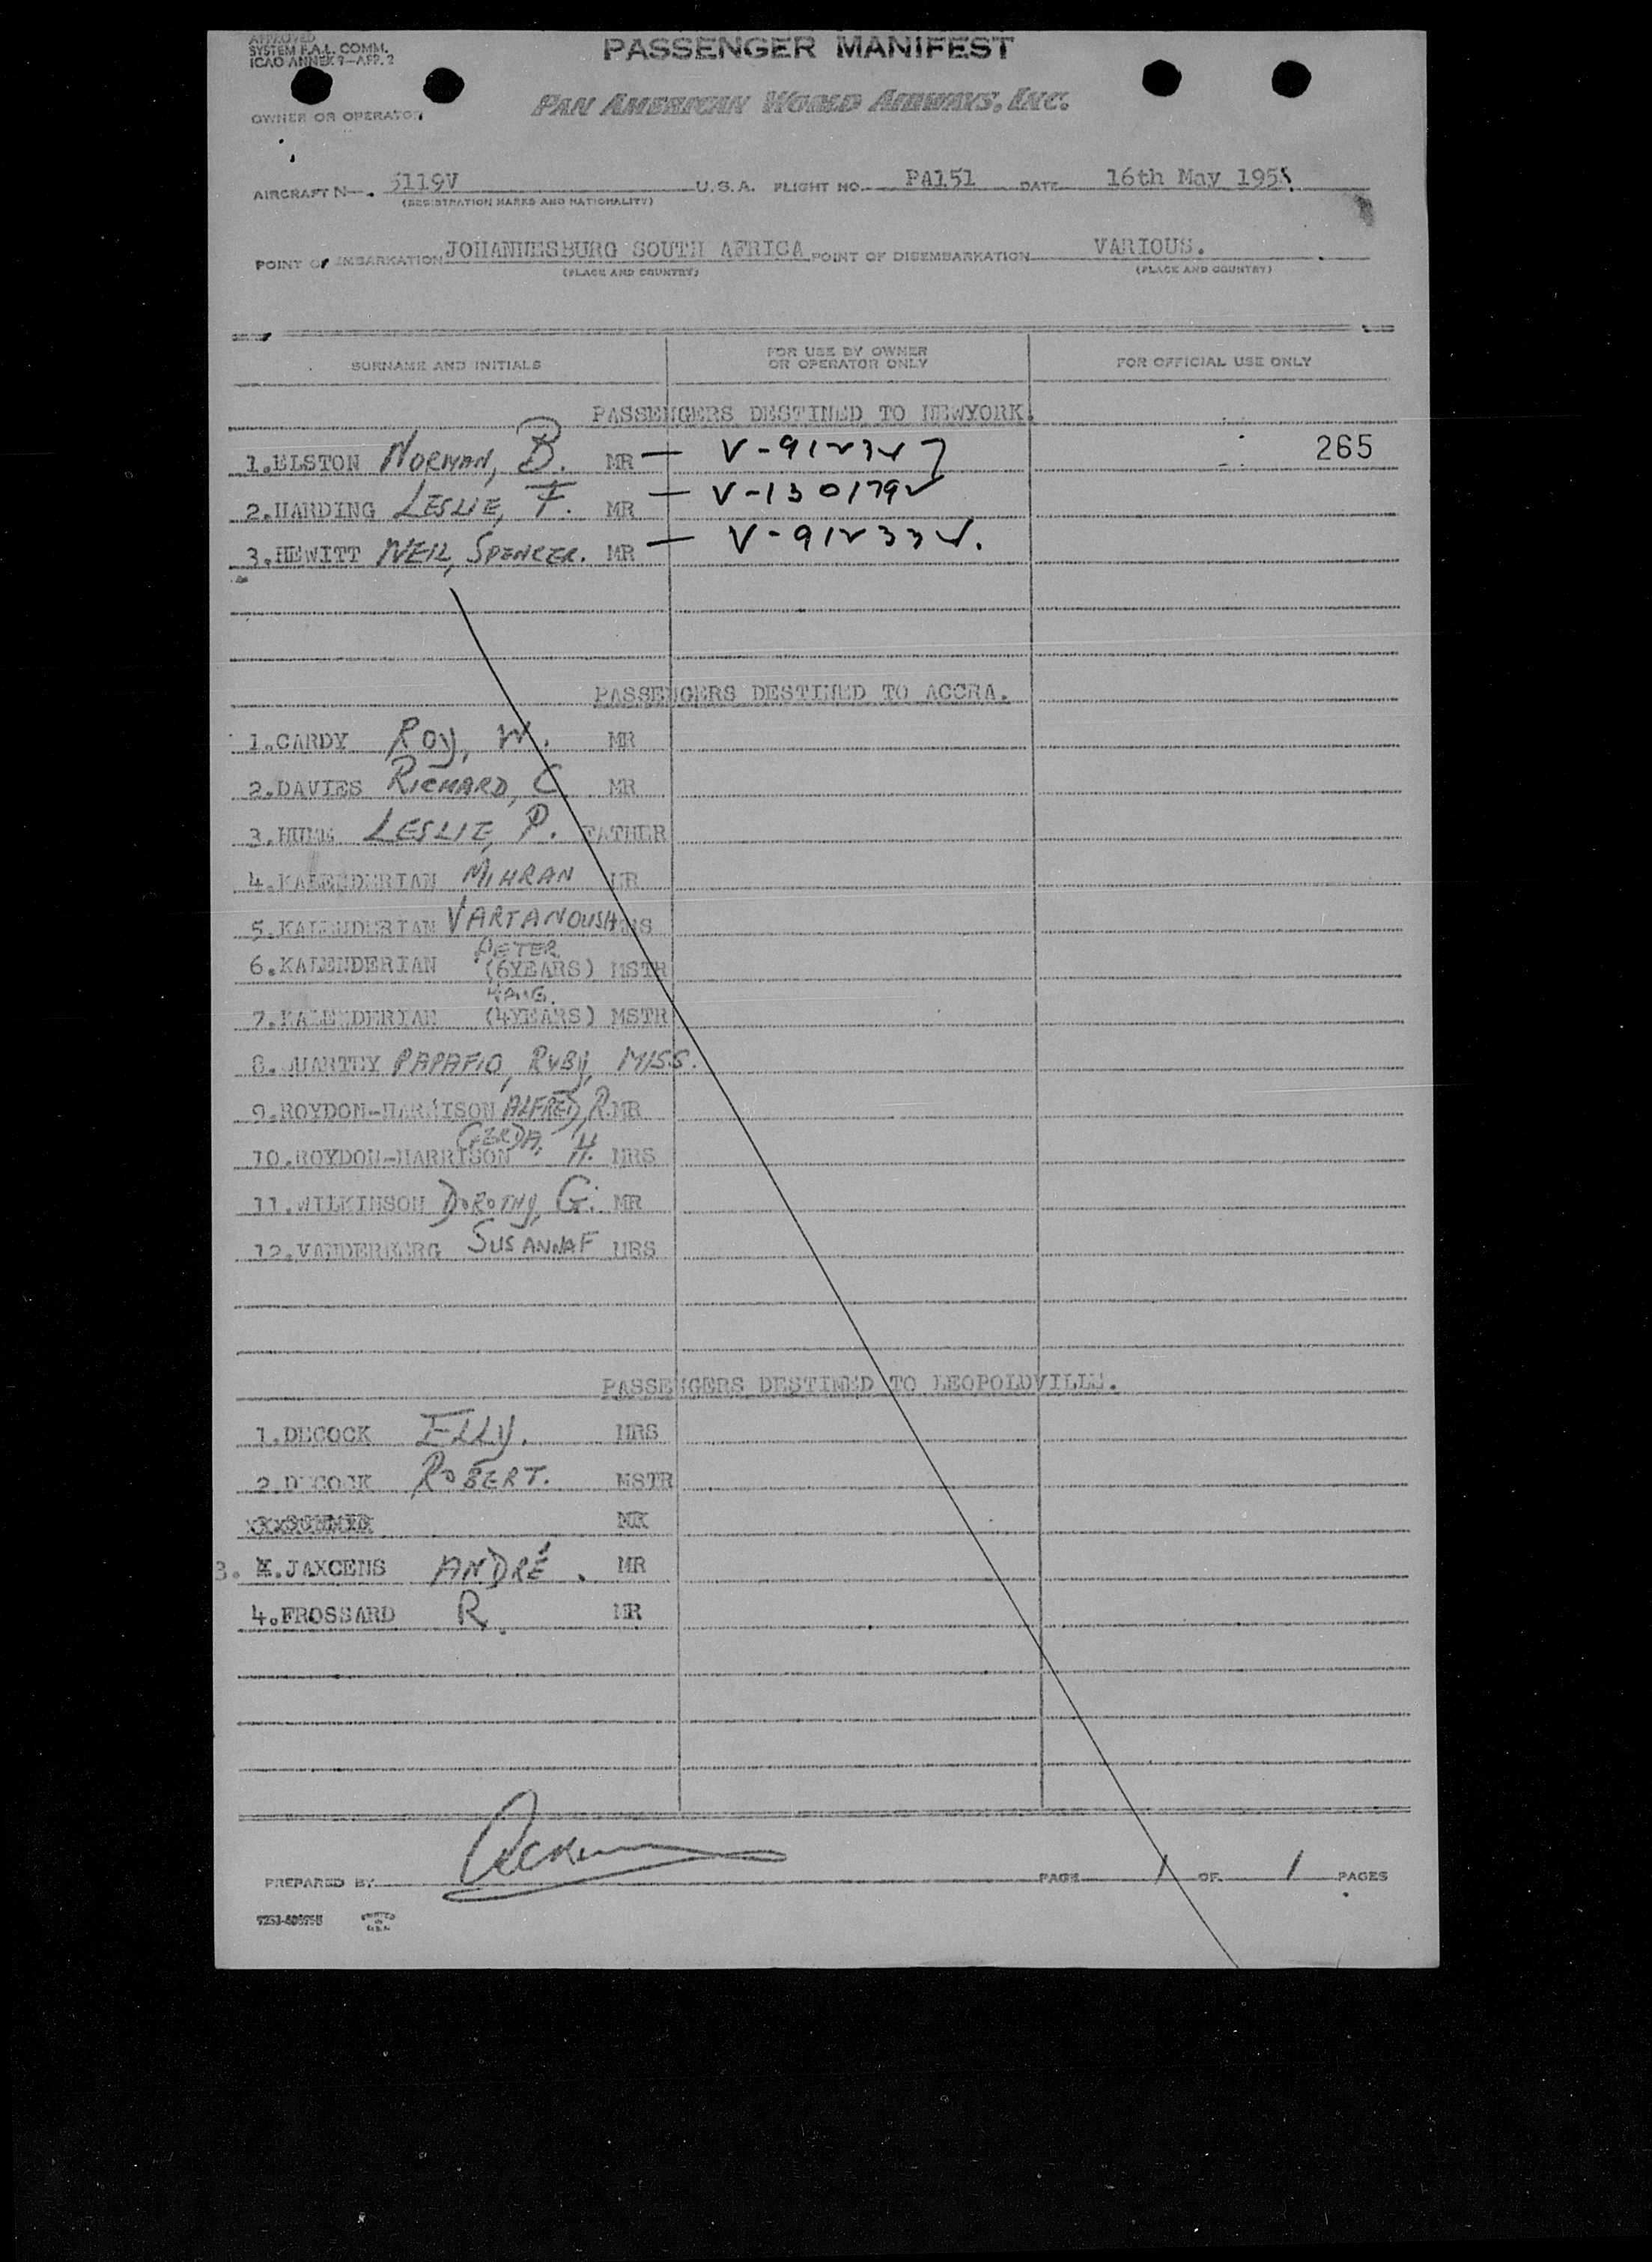 APPROVED
SYSTEM F.A.L. COMM.
ICAO ANNEX 9—APP. 2
PASSENGER MANIFEST
PAN AMERICAN WORLD AIRWAYS, INC.
OWNER OR OPERATOR
AIRCRAFT N—. 5119V U.S.A. FLIGHT NO. PA151 DATE 16th May 1955
(REGISTRATION MARKS AND NATIONALITY)
POINT OF EMBARKATION JOHANNESBURG SOUTH AFRICA POINT OF DISEMBARKATION VARIOUS.
(PLACE AND COUNTRY) (PLACE AND COUNTRY)
SURNAME AND INITIALS FOR USE BY OWNER OR OPERATOR ONLY FOR OFFICIAL USE ONLY
PASSENGERS DESTINED TO NEWYORK.
265
1.ELSTON NORMAN, B. MR —
2.HARDING LESLIE, F. MR — V-1301792
3.HEWITT NEIL, SPENCER. MR —
PASSENGERS DESTINED TO ACCRA.
1.CARDY ROY, W. MR
2.DAVIES RICHARD, C MR
3. LESLIE, P. FATHER
4.KALENDERIAN MIHRAN MR
5.KALENDERIAN VARTANOUSH
6.KALENDERIAN PETER (6YEARS) MSTR
7.KALENDERIAN (4YEARS) MSTR
8.QUARTEY PAPAFIO, RUBY, MISS.
9.ROYDON-HARRISON ALFRED, R. MR
10.ROYDON-HARRISON GERDA. H. MRS
11.WILKINSON DOROTHY, G. MR
12.VANDERBERG SUSANNA F MRS
PASSENGERS DESTINED TO LEOPOLDVILLE.
1.DECOCK ELLY. MRS
2.DECOCK ROBERT. MSTR
3. JAXCENS ANDRÉ. MR
4.FROSSARD R. MR
PREPARED BY PAGE 1 OF 1 PAGES
PRINTED IN U.S.A.